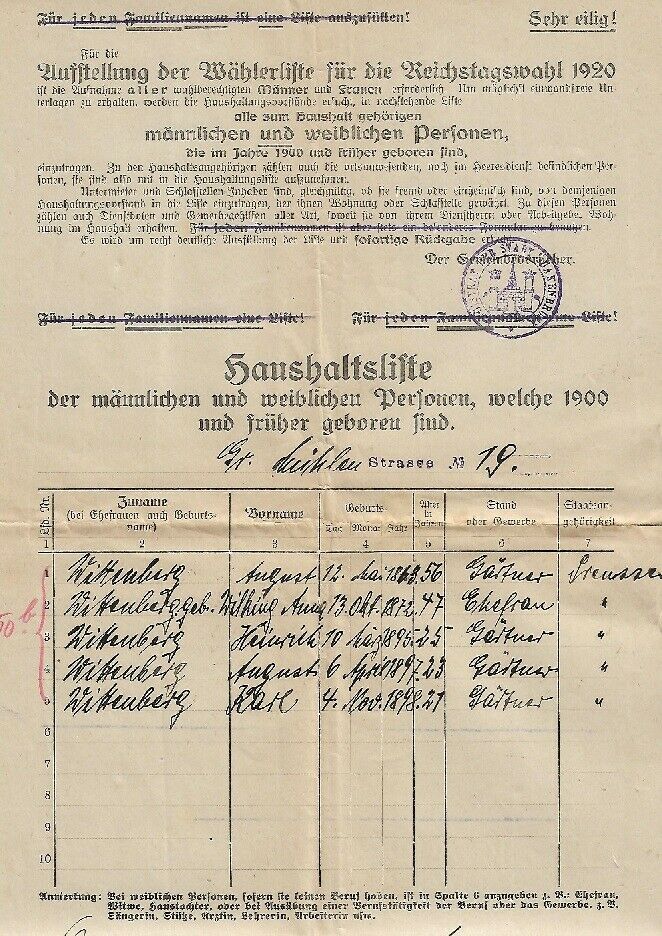 Für jeden Familiennamen ist eine Liste auszufüllen! Sehr eilig!
Für die
Aufstellung der Wählerliste für die Reichstagswahl 1920
ist die Aufnahme aller wahlberechtigten Männer und Frauen erforderlich. Um möglichst einwandfreie Un-
terlagen zu erhalten, werden die Haushaltungsvorstände ersucht, in nachstehende Liste
alle zum Haushalt gehörigen
männlichen und weiblichen Personen,
die im Jahre 1900 und früher geboren sind,
einzutragen. Zu den Haushaltsangehörigen zählen auch die ortsanwesenden, noch im Heeresdienst befindlichen Per-
sonen, sie sind also mit in die Haushaltungsliste aufzunehmen.
Untermieter und Schlafstellen-Inhaber sind, gleichgültig, ob sie fremd oder einheimisch sind, von demjenigen
Haushaltungsvorstand in die Liste einzutragen, der ihnen Wohnung oder Schlafstelle gewährt. Zu diesen Personen
zählen auch Dienstboten und Gewerbegehilfen aller Art, soweit sie von ihrem Dienstherrn oder Arbeitgeber Woh-
nung im Haushalt erhalten. Für jeden Familiennamen ist aber stets ein besonderes Formular zu benutzen.
Es wird um recht deutliche Ausfüllung der Liste und sofortige Rückgabe ersucht.
Der Gemeindevorsteher.
Für jeden Familiennamen eine Liste! Für jeden Familiennamen eine Liste!
Haushaltsliste
der männlichen und weiblichen Personen, welche 1900
und früher geboren sind.
Gr. Mühlen Strasse № 19.
Lfd. Nr. Zuname (bei Ehefrauen auch Geburts-name) Vorname Geburts- Tag Monat Jahr Alter in Jahren Stand oder Gewerbe Staatsan-gehörigkeit
1 2 3 4 5 6 7
1 Wittenberg August 12. Mai 1863. 56 Gärtner Preussen
2 Wittenberg geb. Wilking Anna 13. Okt. 1872. 47 Ehefrau "
3 Wittenberg Heinrich 10 März 1895. 25 Gärtner "
4 Wittenberg August 6 April 1897. 23 Gärtner "
5 Wittenberg Karl 4. Nov. 1898. 21 Gärtner "
6
7
8
9
10
Anmerkung: Bei weiblichen Personen, sofern sie keinen Beruf haben, ist in Spalte 6 anzugeben z. B.: Ehefrau,
Witwe, Haustochter, oder bei Ausübung einer Berufstätigkeit der Beruf oder das Gewerbe. z. B.
Sängerin, Stütze, Ärztin, Lehrerin, Arbeiterin usw.